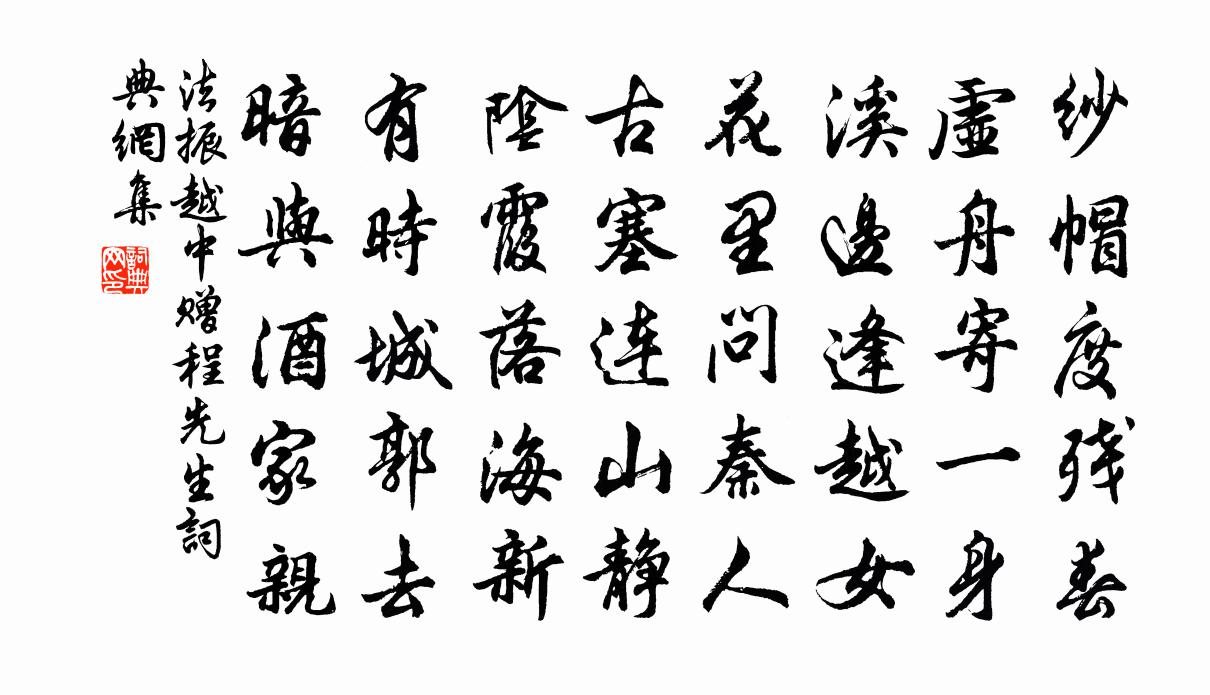 纱帽度残春
虚舟寄一身
溪邊逢越女
花里問秦人
古塞连山静
陰霞落海新
有時城郭去
暗與酒家親
法振越中赠程先生詞
典網集
詞典
网印